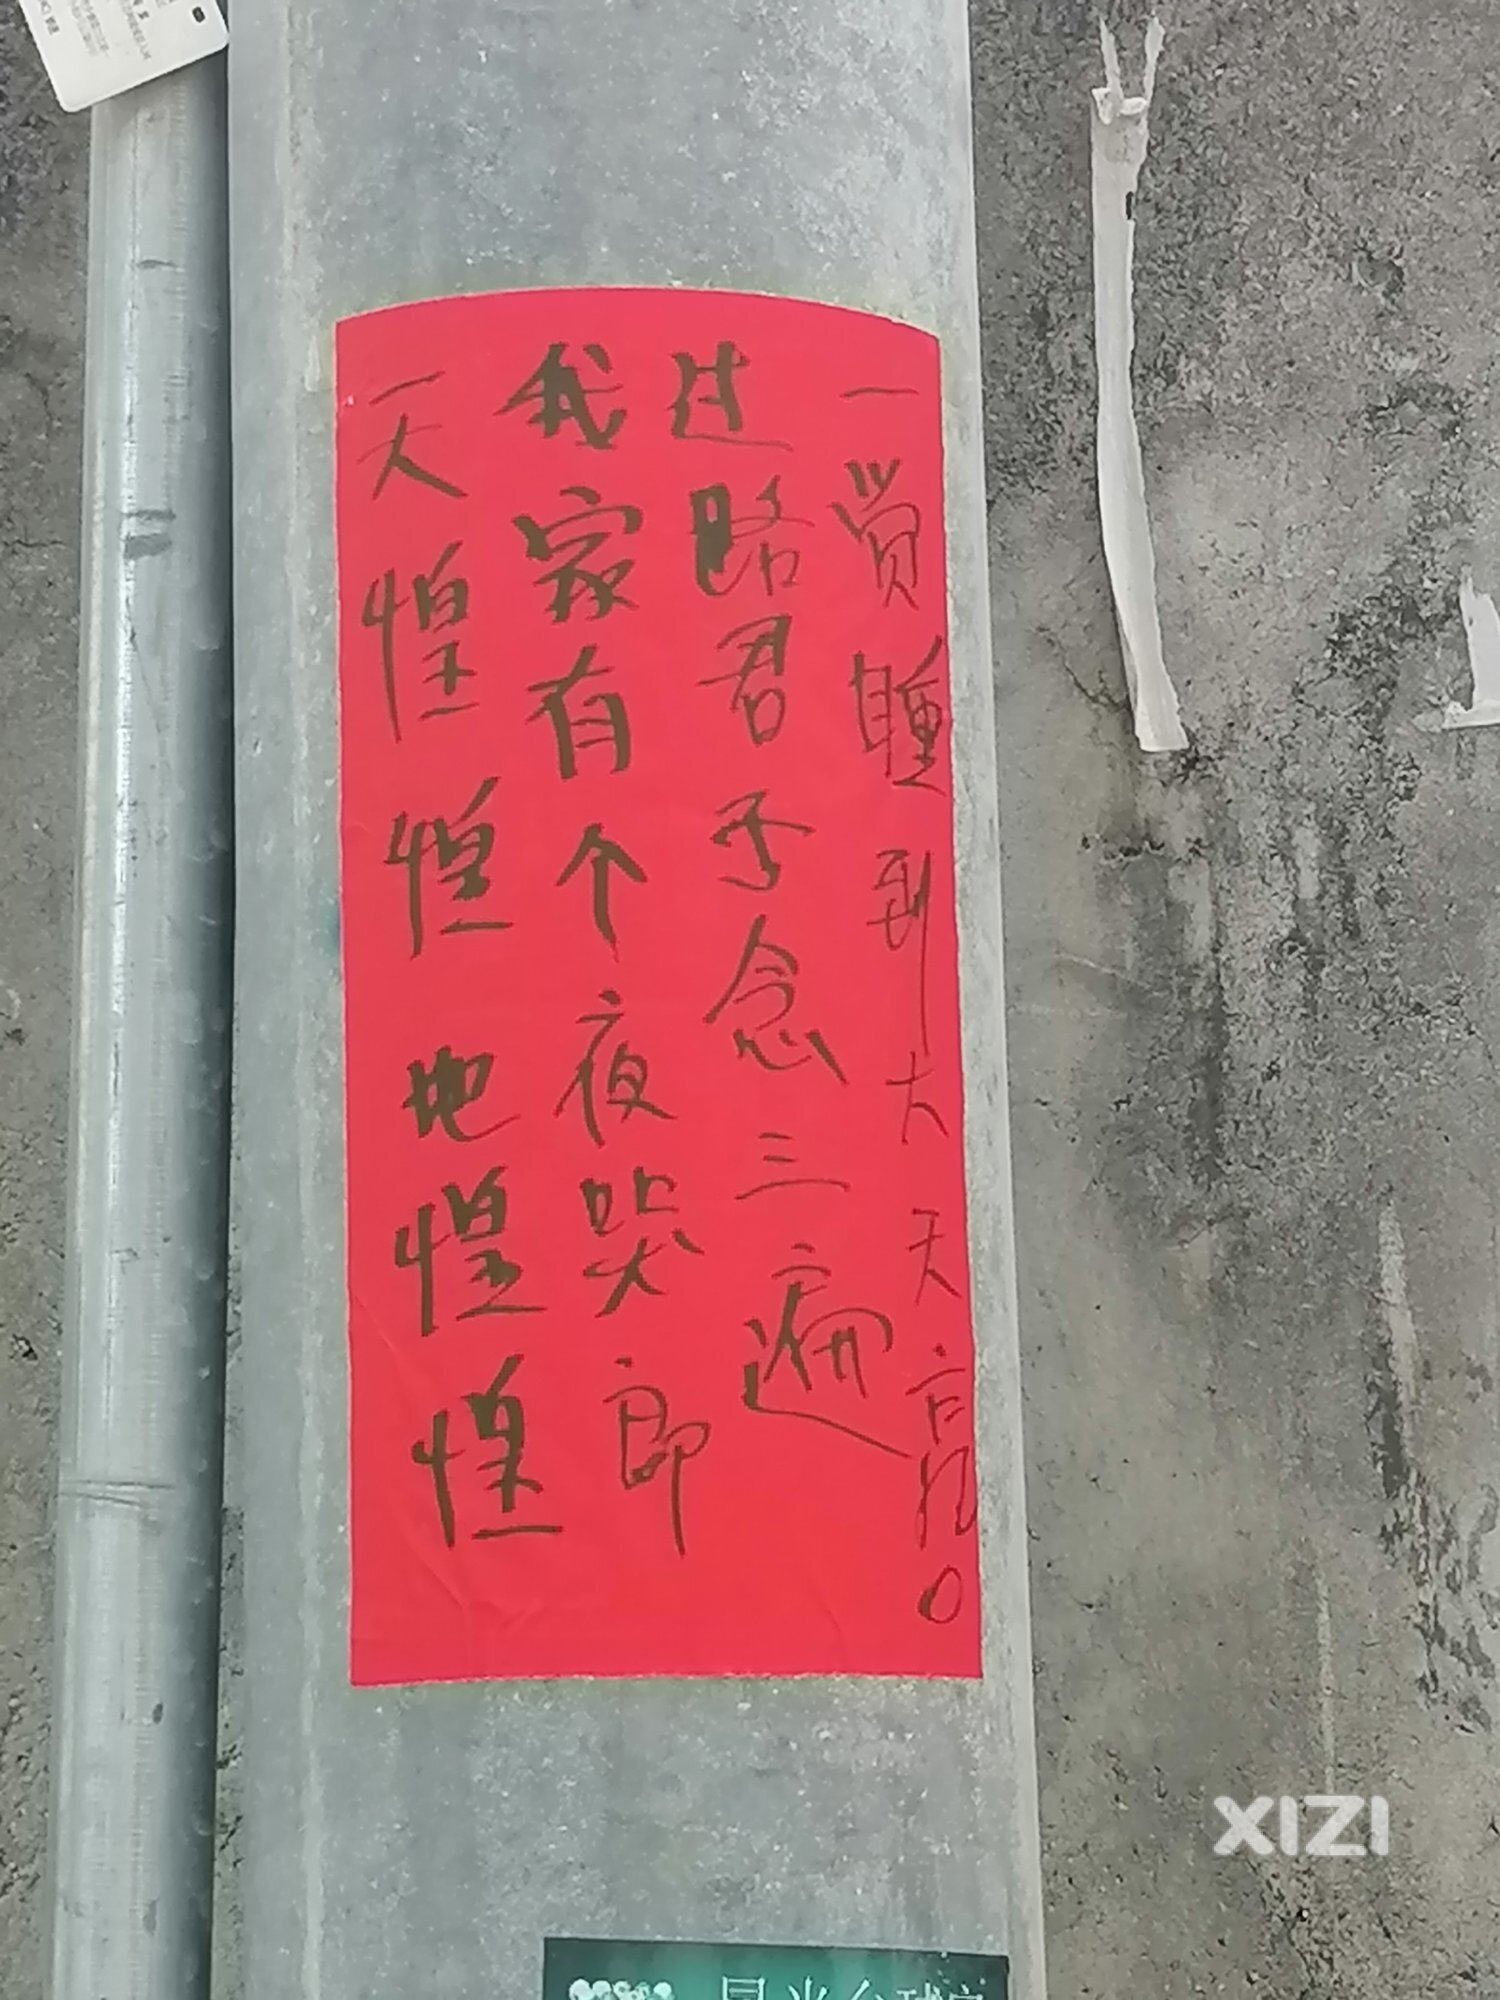 天惶惶地惶惶
我家有个夜哭郎
过路君子念三遍
一觉睡到大天亮。
XIZI